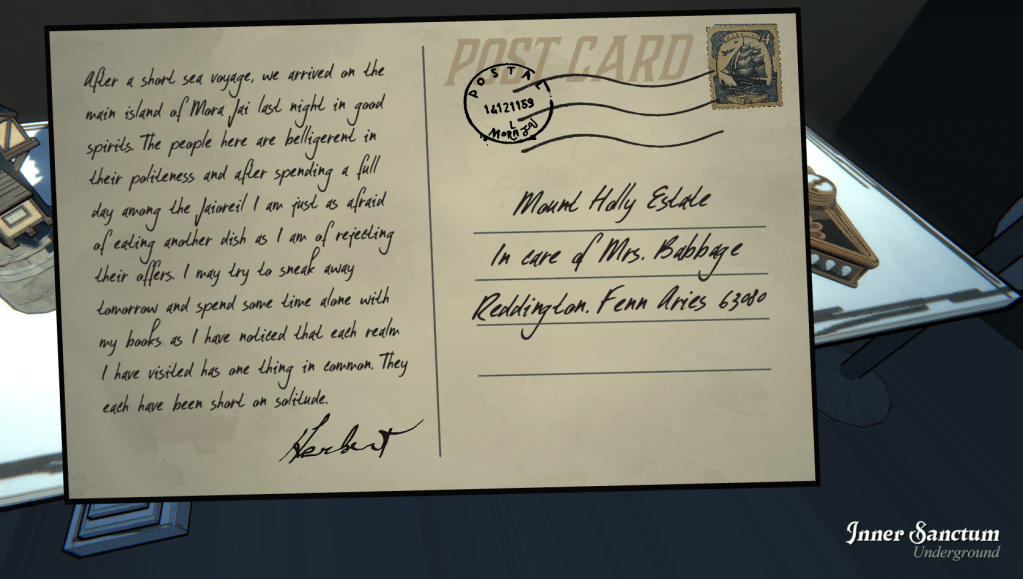 After a short sea voyage, we arrived on the
main island of Mora Jai last night in good
spirits. The people here are belligerent in
their politeness and after spending a full
day among the Jaioreil I am just as afraid
of eating another dish as I am of rejecting
their offers. I may try to sneak away
tomorrow and spend some time alone with
my books as I have noticed that each realm
I have visited has one thing in common. They
each have been short on solitude.
Herbert
POST CARD
POSTAL
14121159
L
MORA JAI
Mount Holly Estate
In care of Mrs. Babbage
Reddington. Fenn Aries 63080
Inner Sanctum
Underground